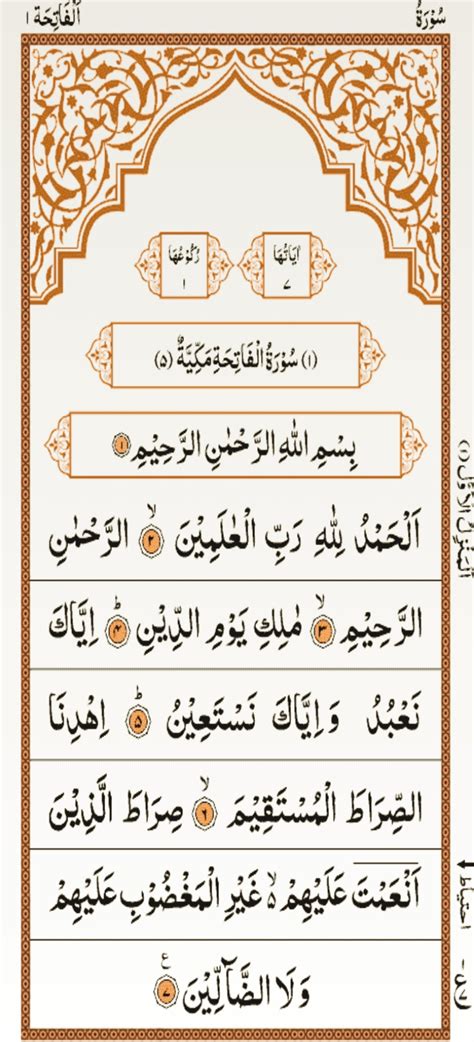 سُوْرَةُ الْفَاتِحَة ١
اٰيَاتُهَا ٧
رُكُوْعُهَا ١
(١) سُوْرَةُ الْفَاتِحَةِ مَكِّيَّةٌ (٥)
بِسْمِ اللّٰهِ الرَّحْمٰنِ الرَّحِيْمِ ١
اَلْحَمْدُ لِلّٰهِ رَبِّ الْعٰلَمِيْنَ ۙ ٢ الرَّحْمٰنِ
الرَّحِيْمِ ۙ ٣ مٰلِكِ يَوْمِ الدِّيْنِ ؕ ٤ اِيَّاكَ
نَعْبُدُ وَاِيَّاكَ نَسْتَعِيْنُ ؕ ٥ اِهْدِنَا
الصِّرَاطَ الْمُسْتَقِيْمَ ۙ ٦ صِرَاطَ الَّذِيْنَ
اَنْعَمْتَ عَلَيْهِمْ ۙ۬ غَيْرِ الْمَغْضُوْبِ عَلَيْهِمْ
وَلَا الضَّآلِّيْنَ ٧ ع
اَلْمَنْزِلُ الْاَوَّلُ (١)
احتياط